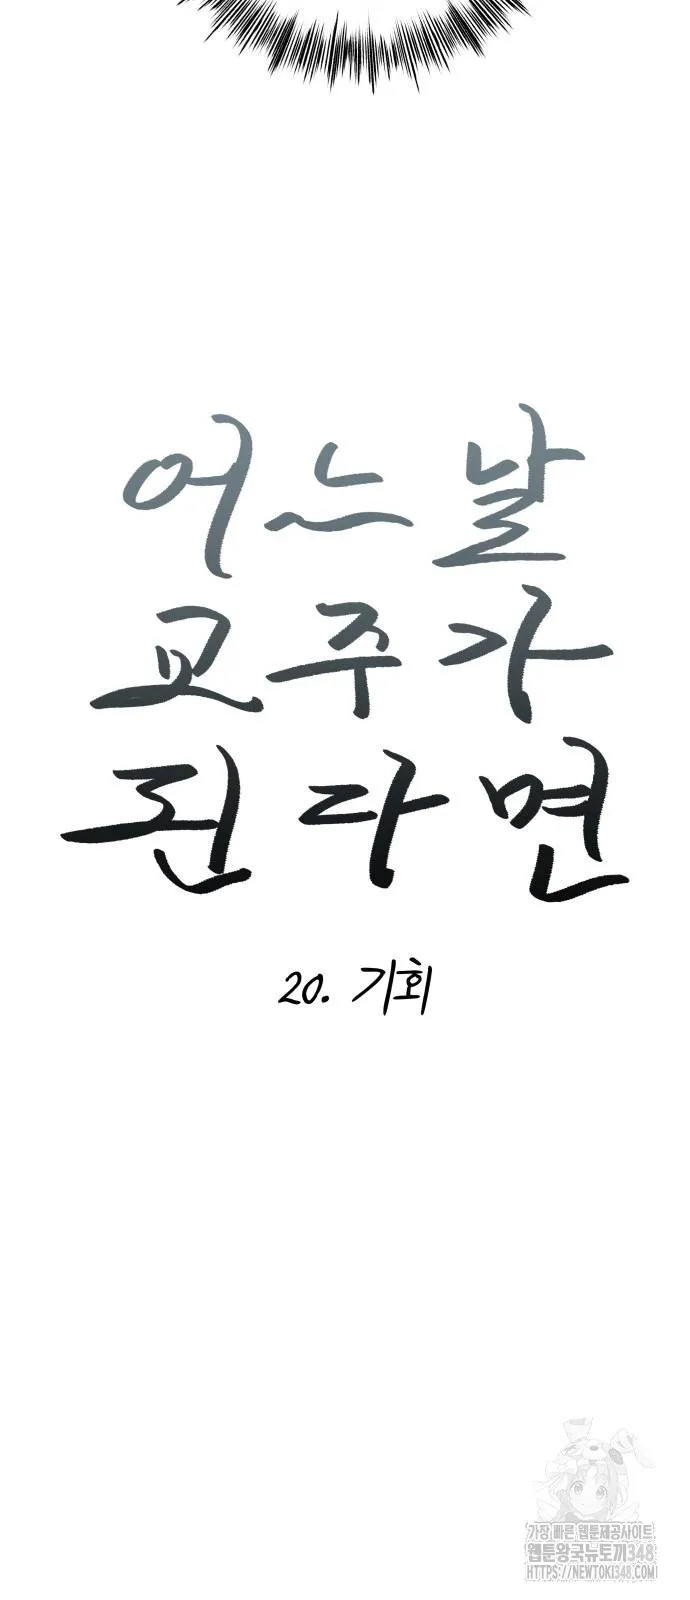 어느날
교주가
된다면
20. 기회
가장 빠른 웹툰제공사이트
웹툰왕국뉴토끼348
HTTPS://NEWTOKI348.COM